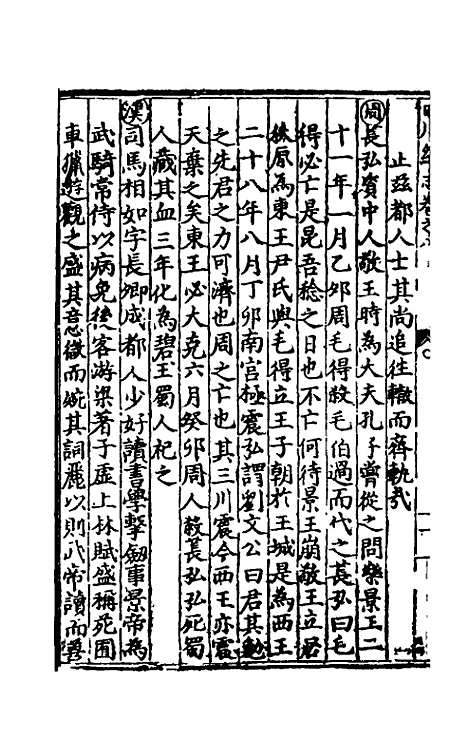 止茲都人士其尚追往轍而齊軌哉
周 萇弘資中人敬王時為大夫孔子嘗從之問樂景王二
十一年一月乙卯周毛得殺毛伯過而代之萇弘曰毛
得必亡是昆吾稔之日也不亡何待景王崩敬王立居
狄原為東王尹氏與毛得立王子朝於王城是為西王
二十八年八月丁卯南宮極震弘謂劉文公曰君其勉
之先君之力可濟也周之亡也其三川震今西王亦震
天棄之矣東王必大克六月癸卯周人殺萇弘弘死蜀
人藏其血三年化為碧玉蜀人祀之
漢 司馬相如字長卿成都人少好讀書學擊劍事景帝為
武騎常侍以病免後客游梁著子虛上林賦盛稱苑囿
車獵遊觀之盛其意徵而婉其詞麗以則武帝讀而善